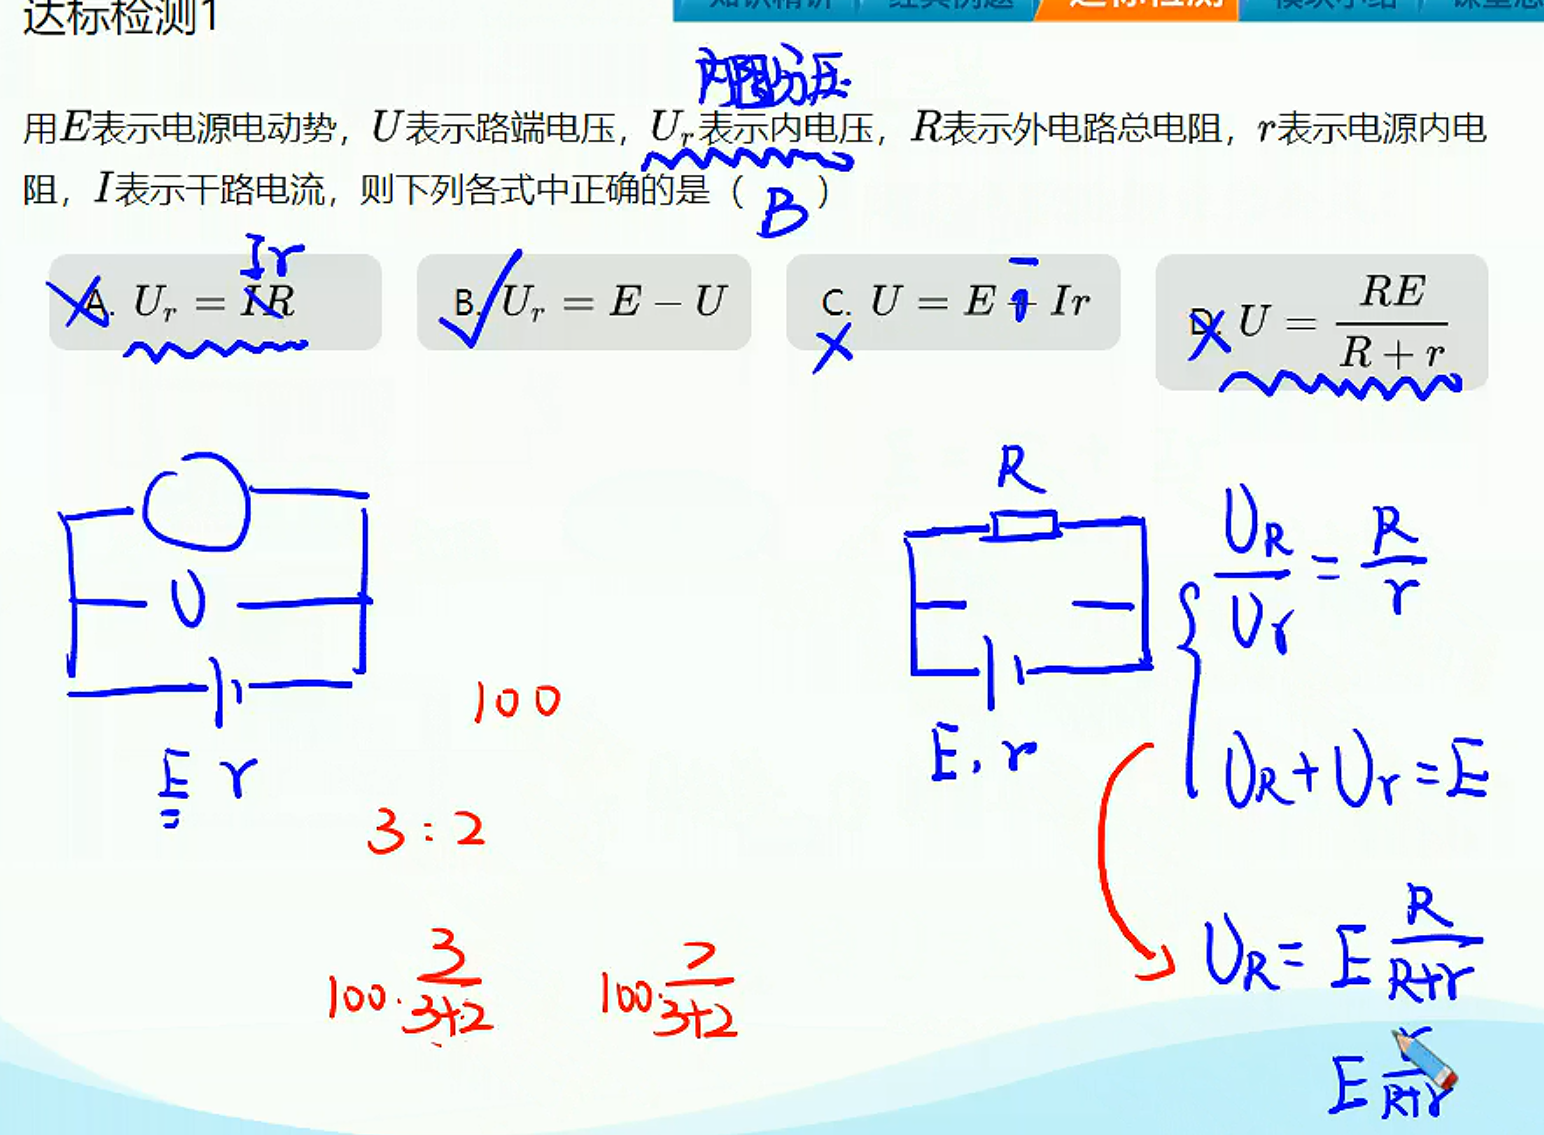 达标检测1
知识精讲 经典例题 达标检测 模块小结
内阻分压
用E表示电源电动势，U表示路端电压，Uᵣ表示内电压，R表示外电路总电阻，r表示电源内电
阻，I表示干路电流，则下列各式中正确的是（ B ）
Ir
A. Uᵣ = IR
B. Uᵣ = E − U
−
C. U = E + Ir
D. U = RE/(R + r)
U
E r
100
3:2
100·3/(3+2) 100·2/(3+2)
R
E, r
U_R/Uᵣ = R/r
U_R + Uᵣ = E
U_R = E R/(R+r)
E r/(R+r)